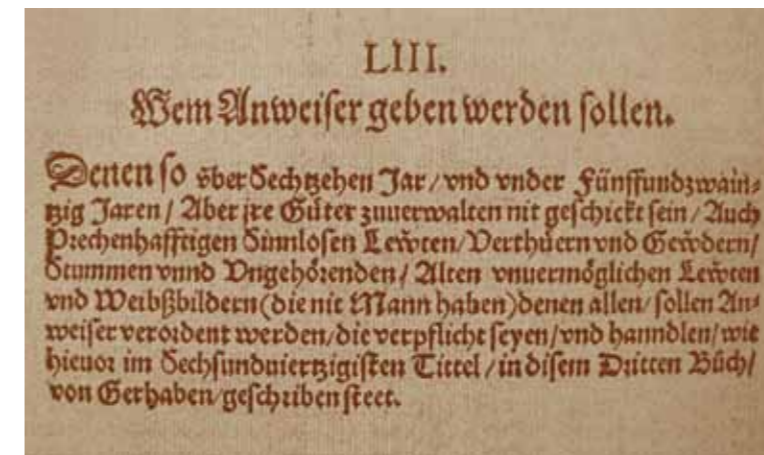 LIII.
Wem Anweiser geben werden sollen.
Denen so vber Sechtzehen Jar / vnd vnder Fünffundzwain⸗
tzig Jaren / Aber jre Güter zuuerwalten nit geschickt sein / Auch
Prechenhafftigen Sinnlosen Lewten / Verthuern vnd Gewdern /
Stummen vnnd Vngehörenden / Alten vnuermöglichen Lewten
vnd Weibßbildern (die nit Mann haben) denen allen / sollen An⸗
weiser verordent werden / die verpflicht seyen / vnd hanndlen / wie
hieuor im Sechsunduiertzigisten Tittel / in disem Dritten Büch /
von Gerhaben / geschriben steet.